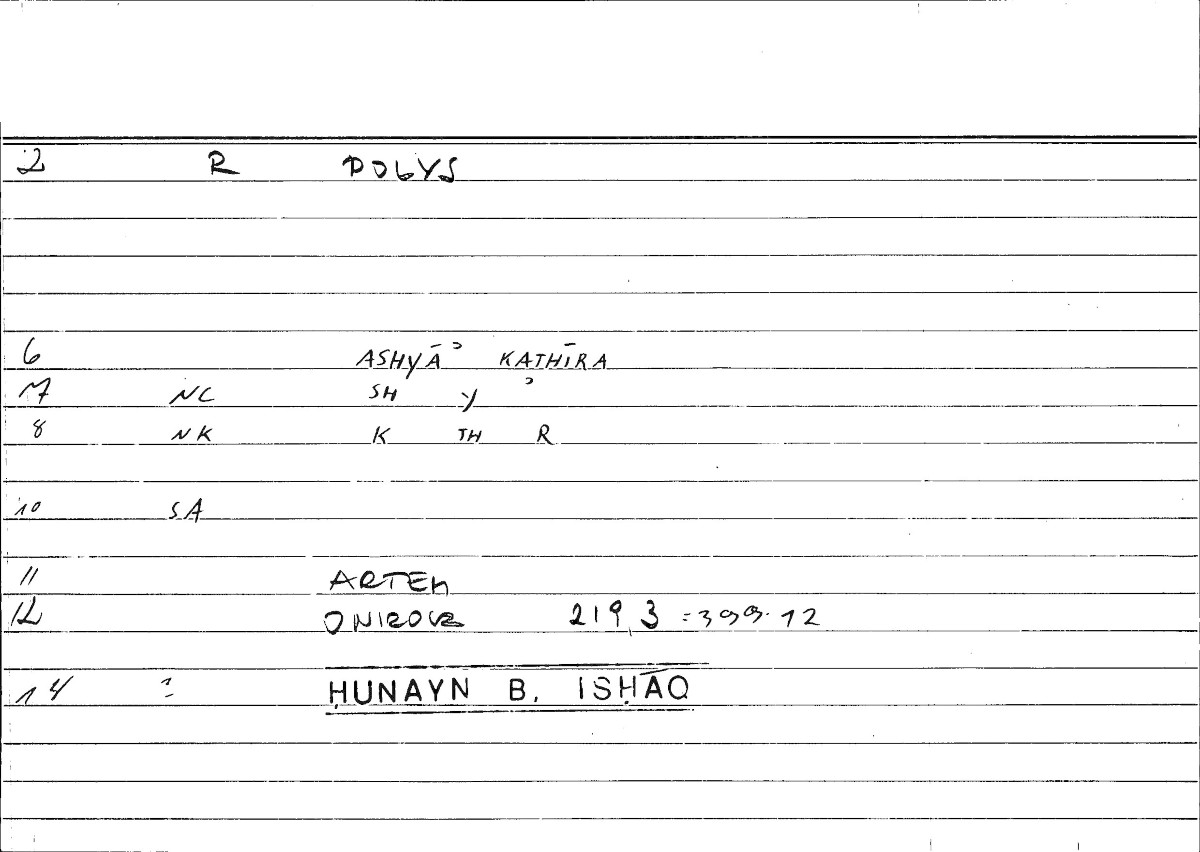 2 R POLYS
6 ASHYĀʾ KATHĪRA
7 NC SH Y ʾ
8 NK K TH R
10 SA
11 ARTEM
12 ONIROCR 219,3 = 399.12
14 ? ḤUNAYN B. ISḤĀQ